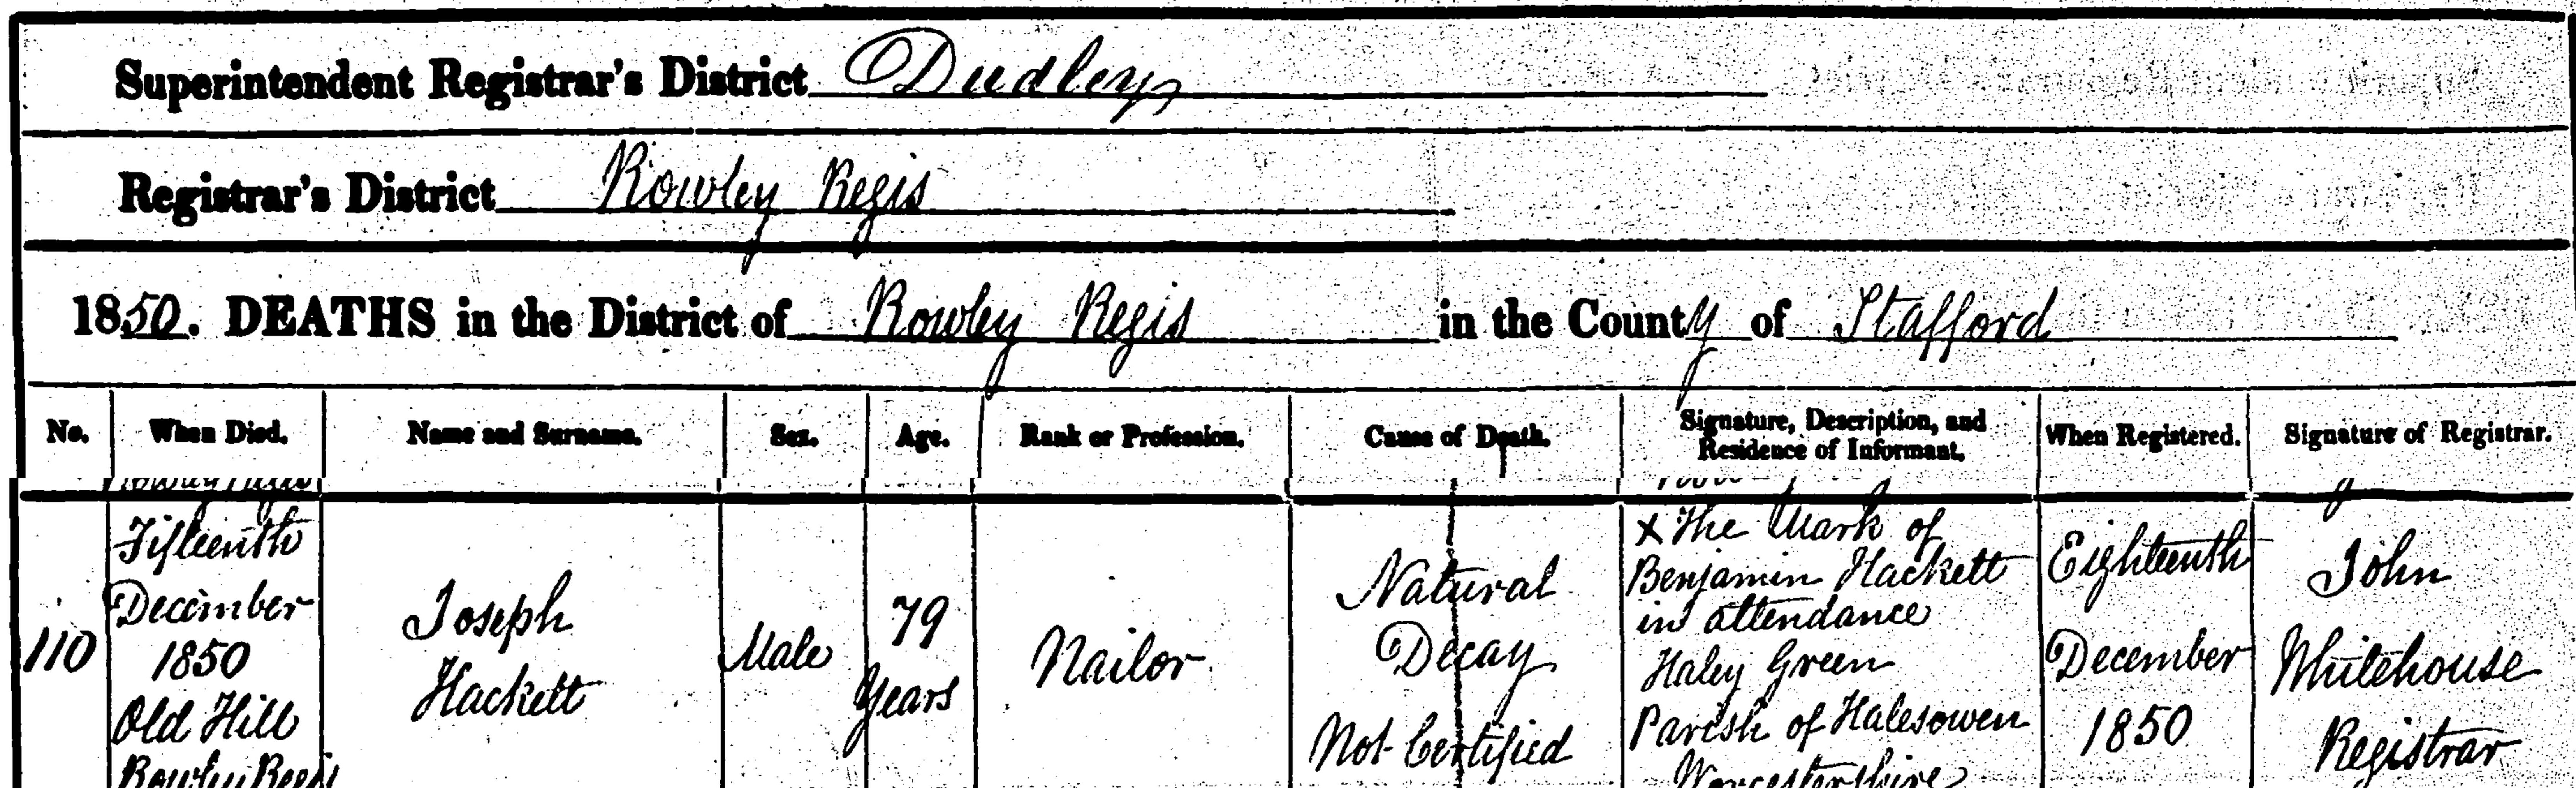 Superintendent Registrar's District Dudley
Registrar's District Rowley Regis
1850. DEATHS in the District of Rowley Regis in the County of Stafford
No. When Died. Name and Surname. Sex. Age. Rank or Profession. Cause of Death. Signature, Description, and Residence of Informant. When Registered. Signature of Registrar.
110
Fifteenth
December
1850
Old Hill
Rowley Regis
Joseph
Hackett
Male
79
Years
Nailor
Natural
Decay
Not Certified
X The Mark of
Benjamin Hackett
in attendance
Haley Green
Parish of Halesowen
Worcestershire
Eighteenth
December
1850
John
Whitehouse
Registrar